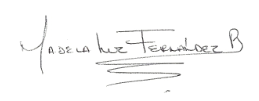 Madela Luz Fernández B